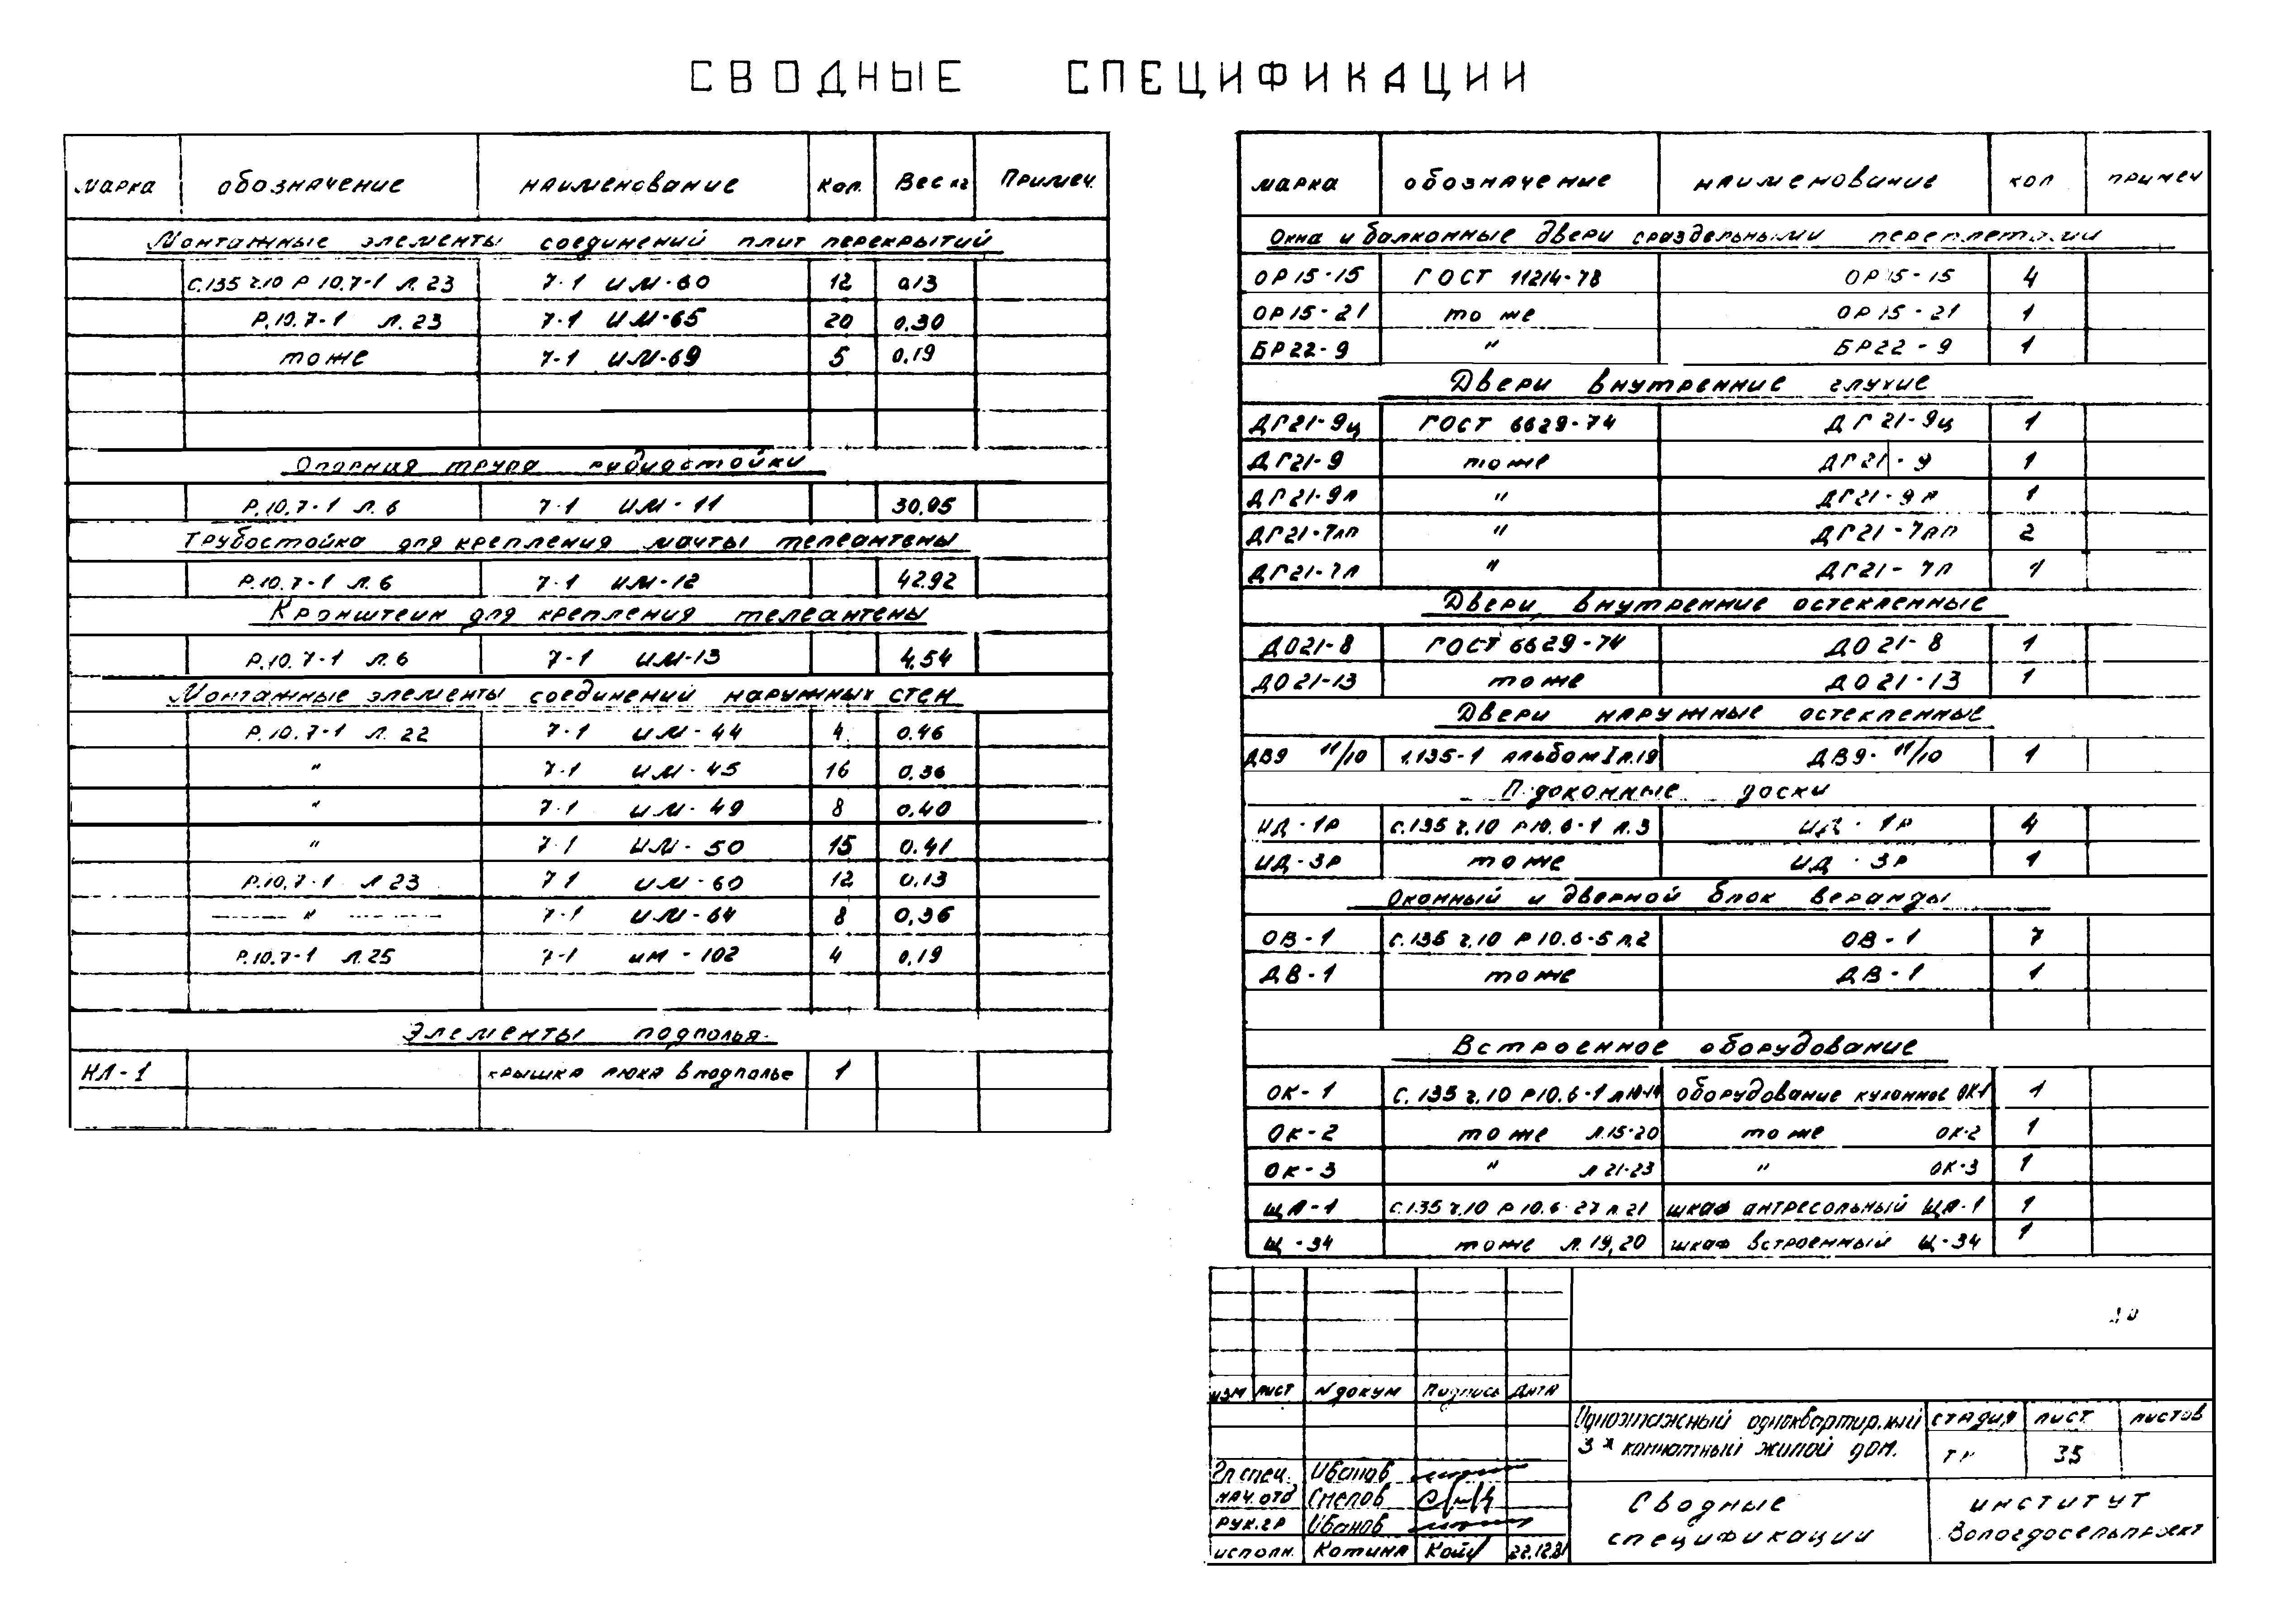 СВОДНЫЕ СПЕЦИФИКАЦИИ
марка обозначение наименование Кол. Вес кг Примеч.
Монтажные элементы соединений плит перекрытий
С.135 ч.10 Р 10.7-1 л. 23 7-1 ИМ-60 12 0,13
Р.10.7-1 л. 23 7-1 ИМ-65 20 0,30
тоже 7-1 ИМ-69 5 0,19
Опорная труба
Р.10.7-1 л. 6 7-1 ИМ-11 30,95
Трубостойка для крепления мачты телеантены
Р.10.7-1 л. 6 7-1 ИМ-12 42,92
Кронштеин для крепления телеантены
Р.10.7-1 л. 6 7-1 ИМ-13 4,54
Монтажные элементы соединений наружных стен
Р.10.7-1 л. 22 7-1 ИМ-44 4 0,46
" 7-1 ИМ-45 16 0,36
" 7-1 ИМ-49 8 0,40
" 7-1 ИМ-50 15 0,41
Р.10.7-1 л 23 7-1 ИМ-60 12 0,13
" 7-1 ИМ-64 8 0,36
Р.10.7-1 л.25 7-1 ИМ-102 4 0,19
Элементы подполья
НЛ-1 крышка люка в подполье 1
марка обозначение наименование кол примеч
Окна и балконные двери с раздельными переплетами
ОР15-15 ГОСТ 11214-78 ОР15-15 4
ОР15-21 то же ОР15-21 1
БР22-9 " БР22-9 1
Двери внутренние глухие
ДГ21-9ц ГОСТ 6629-74 ДГ21-9ц 1
ДГ21-9 тоже ДГ21-9 1
ДГ21-9л " ДГ21-9л 1
ДГ21-7лп " ДГ21-7лп 2
ДГ21-7л " ДГ21-7л 1
Двери внутренние остекленные
ДО21-8 ГОСТ 6629-74 ДО21-8 1
ДО21-13 тоже ДО21-13 1
Двери наружные остекленные
ДВ9 11/10 1.135-1 альбом I л.19 ДВ9-11/10 1
Подоконные доски
ИД-1Р С.135 ч.10 Р10.6-1 л.3 ИД-1Р 4
ИД-3Р тоже ИД-3Р 1
Оконный и дверной блок веранды
ОВ-1 С.135 ч.10 Р10.6-5 л.2 ОВ-1 7
ДВ-1 тоже ДВ-1 1
Встроенное оборудование
ОК-1 С.135 ч.10 Р10.6-1 оборудование кухонное ОК-1 1
ОК-2 тоже л.15-20 тоже ОК-2 1
ОК-3 " л 21-23 " ОК-3 1
ЩА-1 С.135 ч.10 Р10.6-27 л.21 шкаф антресольный ЩА-1 1
Щ-34 тоже л.19,20 шкаф встроенный Щ-34 1
изм лист N докум Подпись Дата
Одноэтажный одноквартирный
3х комнатный жилой дом.
стадия лист листов
35
Гл спец. Иванов
нач.отд Смелов
рук.гр Иванов
исполн. Котина 22.12.81
Сводные
спецификации
институт
Вологдосельпроект